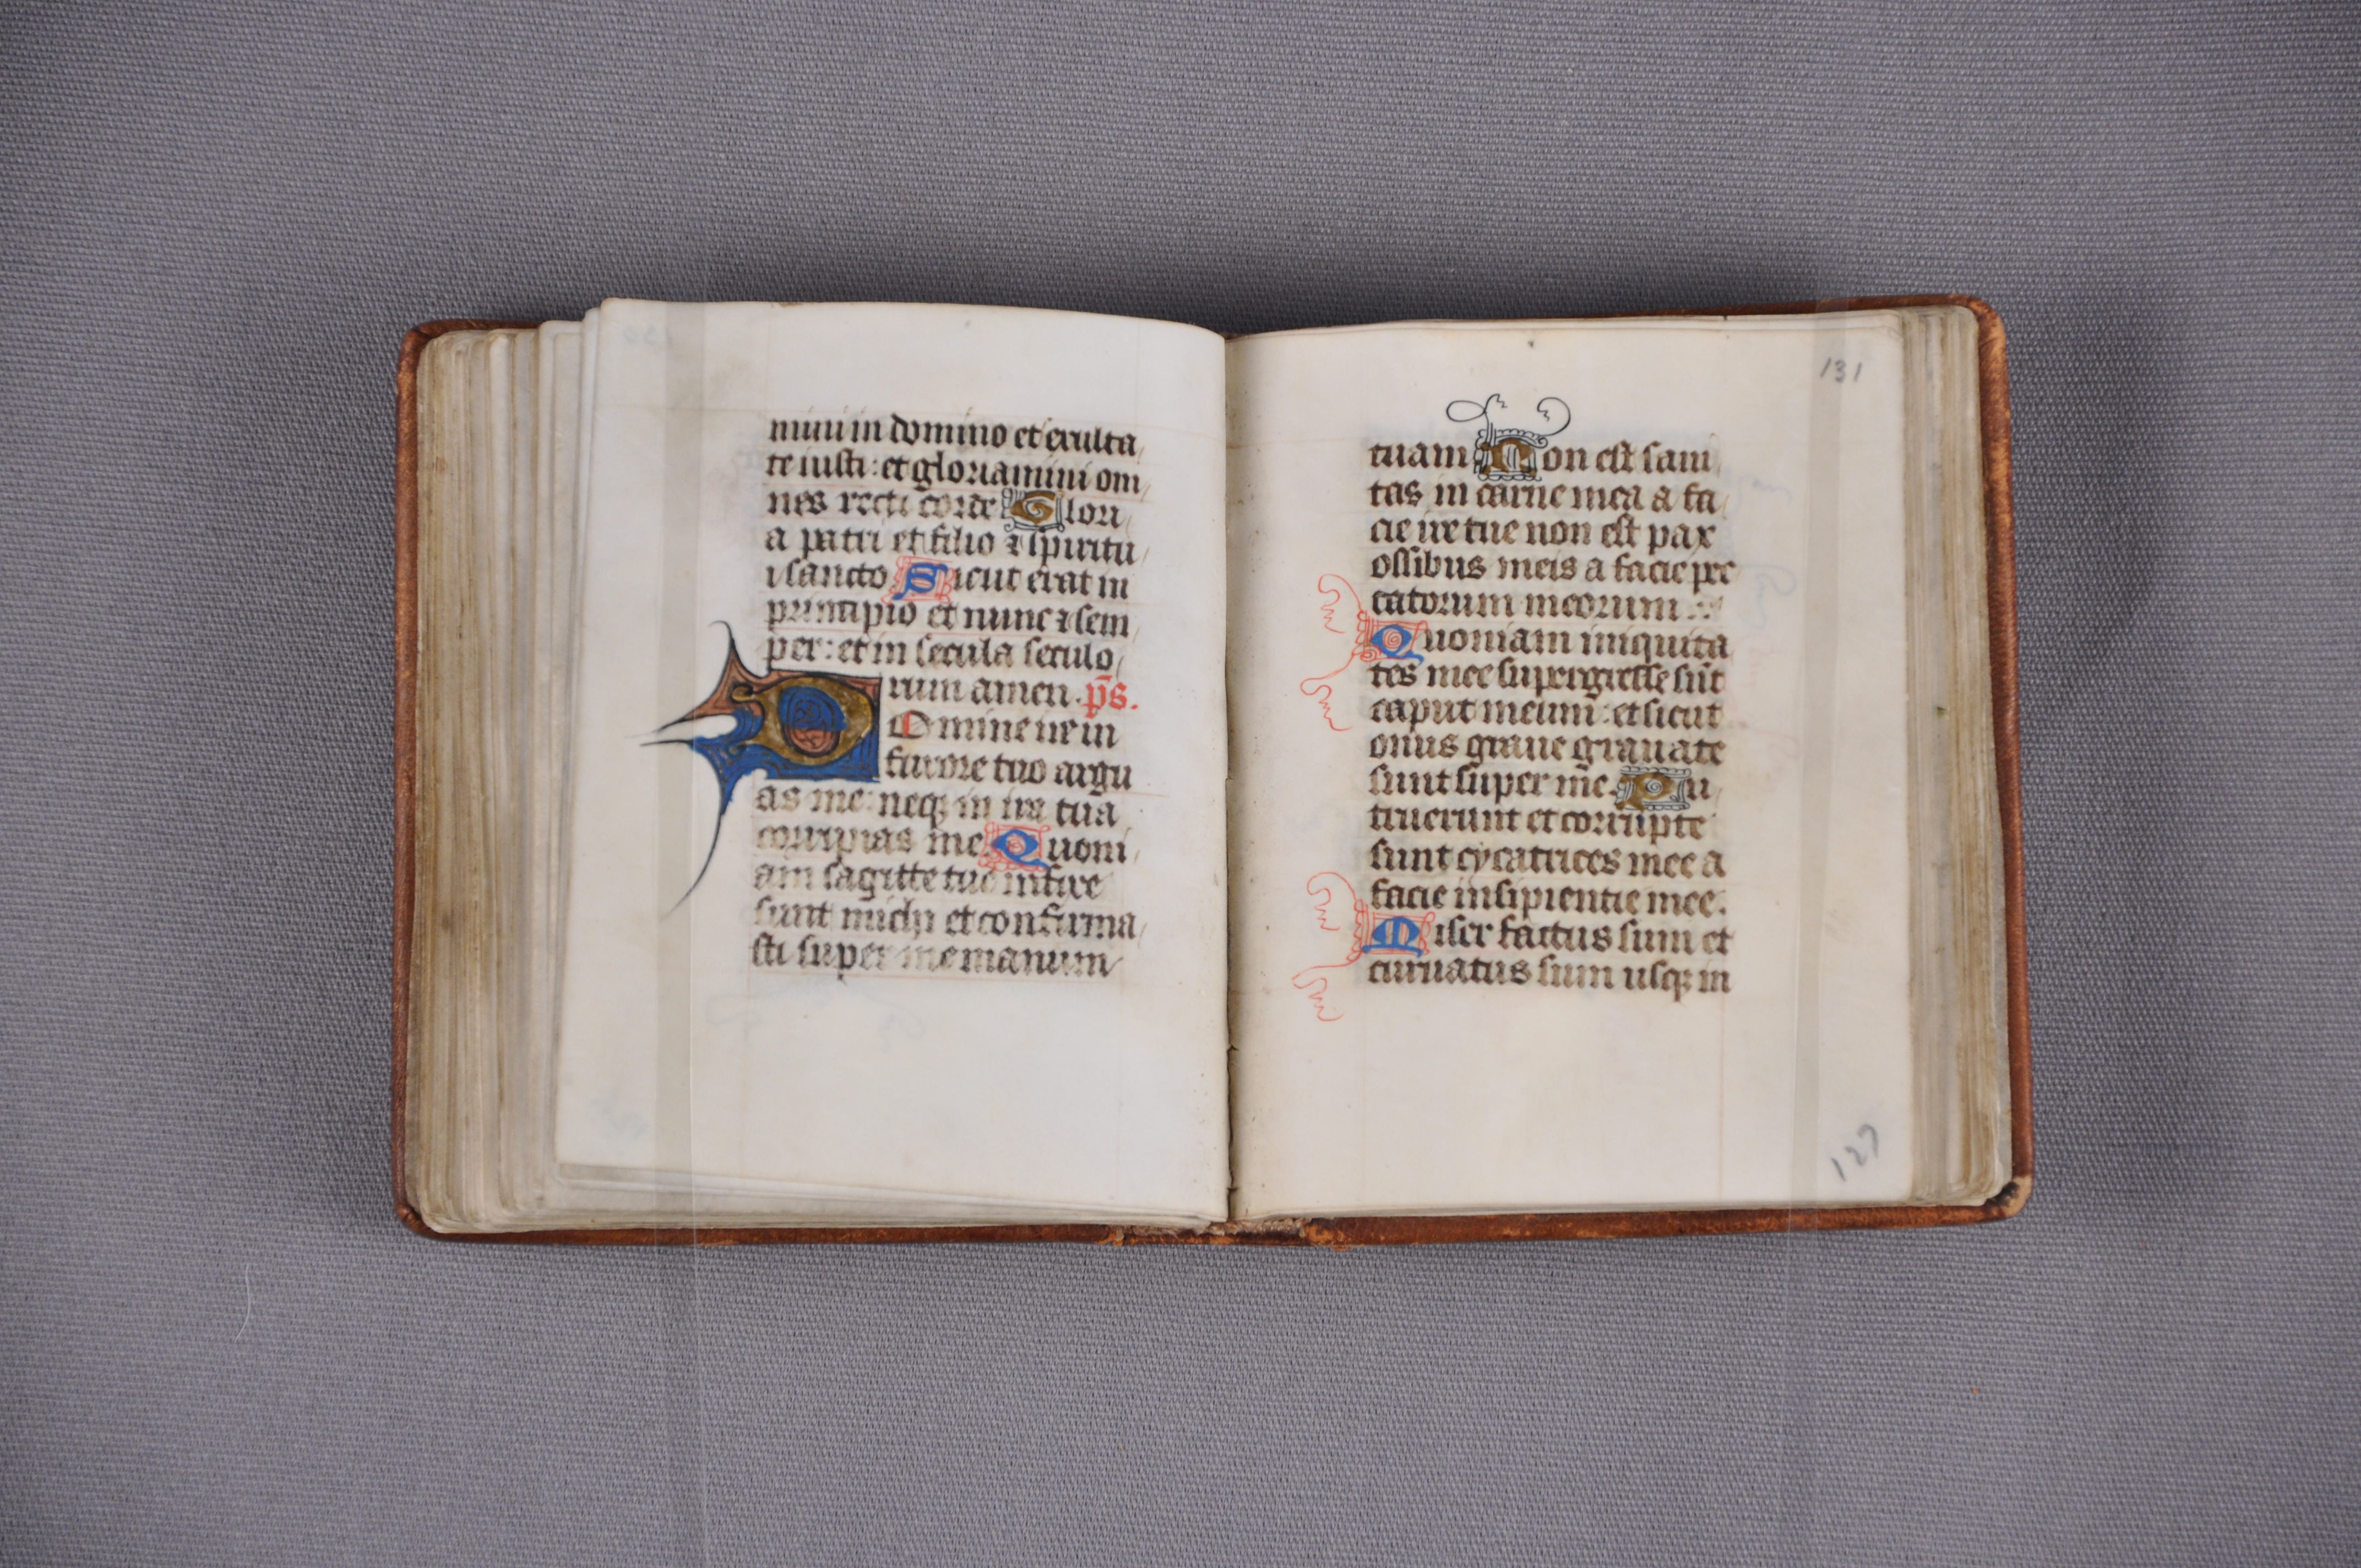 mini in domino et exulta
te iusti: et gloriamini om
nes recti corde Glori
a patri et filio ⁊ spiritu
i sancto Sicut erat in
principio et nunc ⁊ sem
per: et in secula seculo
rum amen. p̄s.
Domine ne in
furore tuo argu
as me: neqꝫ in ira tua
corripias me. Quoni
am sagitte tue infixe
sunt michi et confirma
sti super me manum
131
tuam Non est sani
tas in carne mea a fa
cie ire tue non est pax
ossibus meis a facie pec
catorum meorum.
Quoniam iniquita
tes mee supergresse sūt
caput meum: et sicut
onus graue grauate
sunt super me. Pu
truerunt et corrupte
sunt cycatrices mee a
facie insipientie mee.
Miser factus sum et
curuatus sum usqꝫ in
127